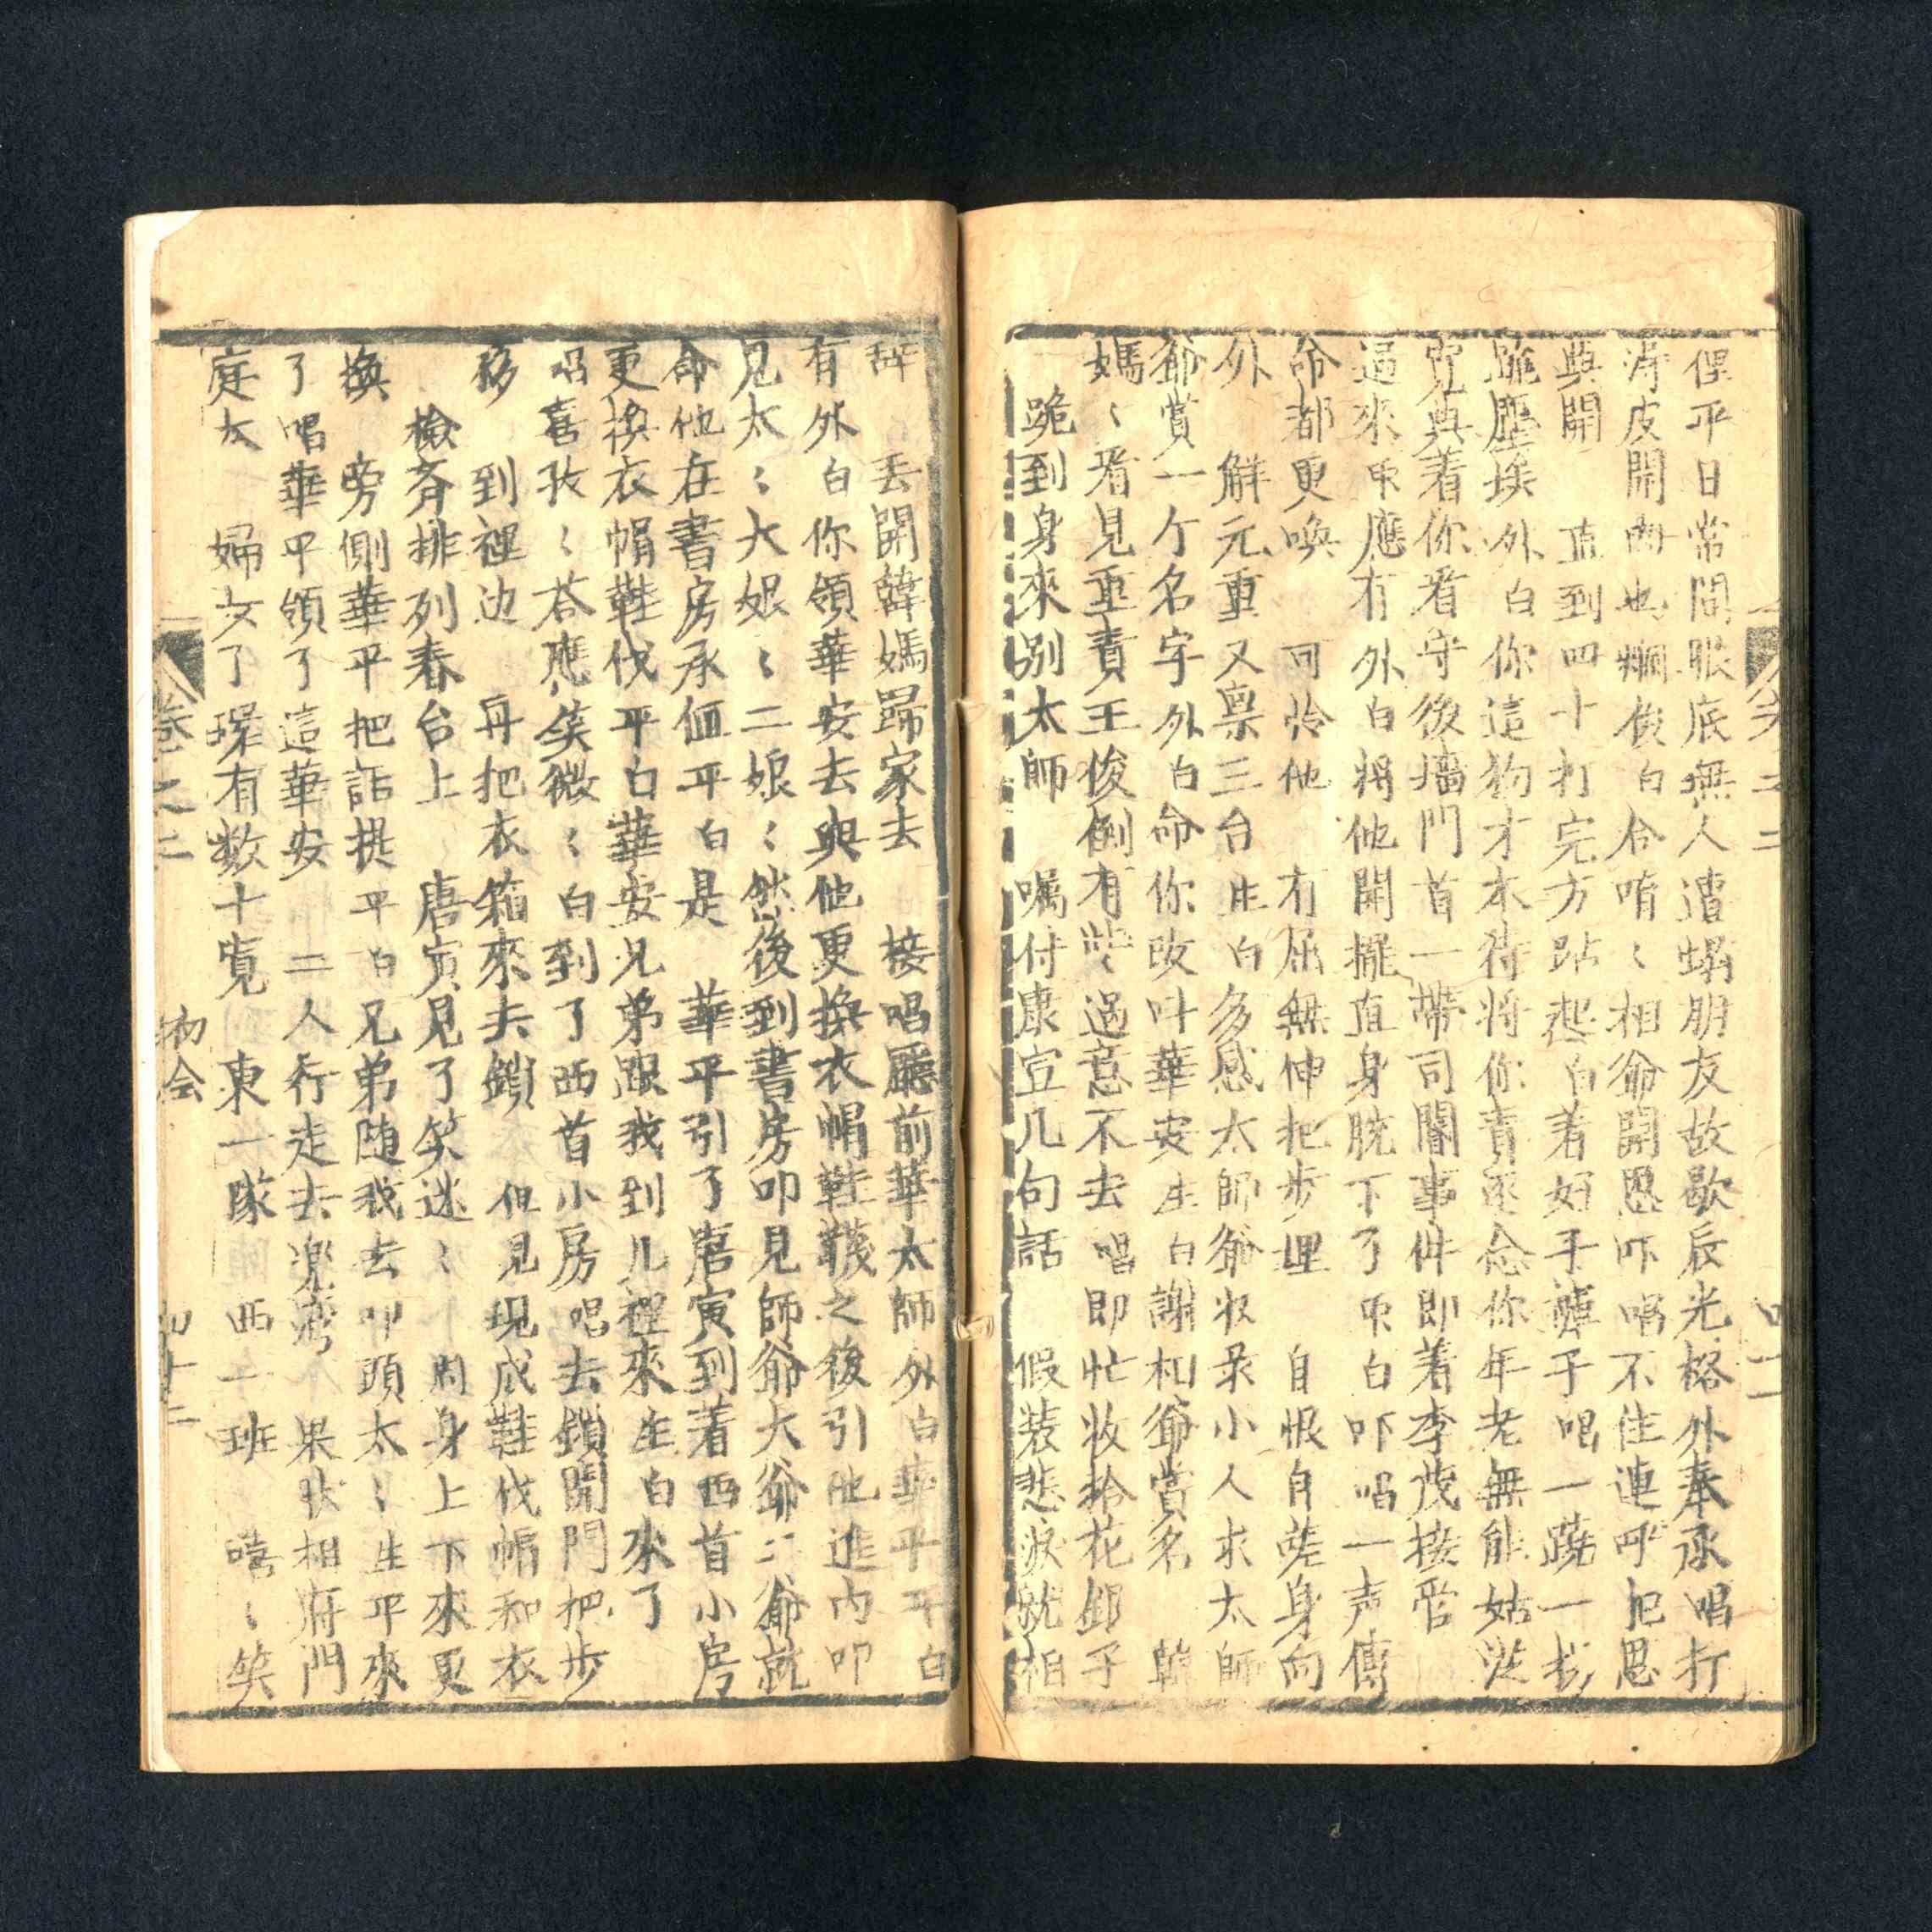 俚平日常間眼底無人遭蝎朋友故歇辰光格外奉承唱打
得皮開肉也爛俊白合唷〻相爺開恩吓唱不住連呼把恩
典開　直到四十打完方跕起白着好手唱一蹺一
跪塵埃外白你這狗才本待將你責逐念你年老無能姑從
寬典着你看守後墻門首一帶司閽事件即着李茂接管
過來應有外白將他開擺直身脫下了白吓唱一声傳
命都更喚　可怜他　有屈無伸把步埋　自恨自差身向
外　觧元重又禀三台生白多感太師爺收录小人求太師
爺賞一个名字外白命你改叫華安生白謝相爺賞名　韓
媽〻看見重責王俊倒有些過意不去唱即忙收拾花鄉子
跪到身來别太師　囑付康宣几句話　假裝悲淚就相
辞　丢開韓媽歸家去　接唱廳前華太師外白華平平白
有外白你領華安去與他更換衣帽鞋襪之後引他進内叩
見太〻大娘〻二娘〻然後到書房叩見師爺大爺二爺就
命他在書房承值平白是　華平引了唐寅到着西首小房
更換衣帽鞋伐平白華安兄弟跟我到儿裡來生白來了
唱喜孜〻荅應笑微〻白到了西首小房唱去鎖開門把步
移　到裡边　再把衣箱來去鎖　但見現成鞋伐帽和衣
檢斉排列春台上　唐寅見了笑迷〻　周身上下來更
換　旁側華平把話提平白兄弟随我去叩頭太〻生平來
了唱華平領了這華安　二人行走去兜灣　果然相府門
庭大　婦女了環有数十寛　東一隊　西一班　嘻〻笑
卷之二
初会
四十二